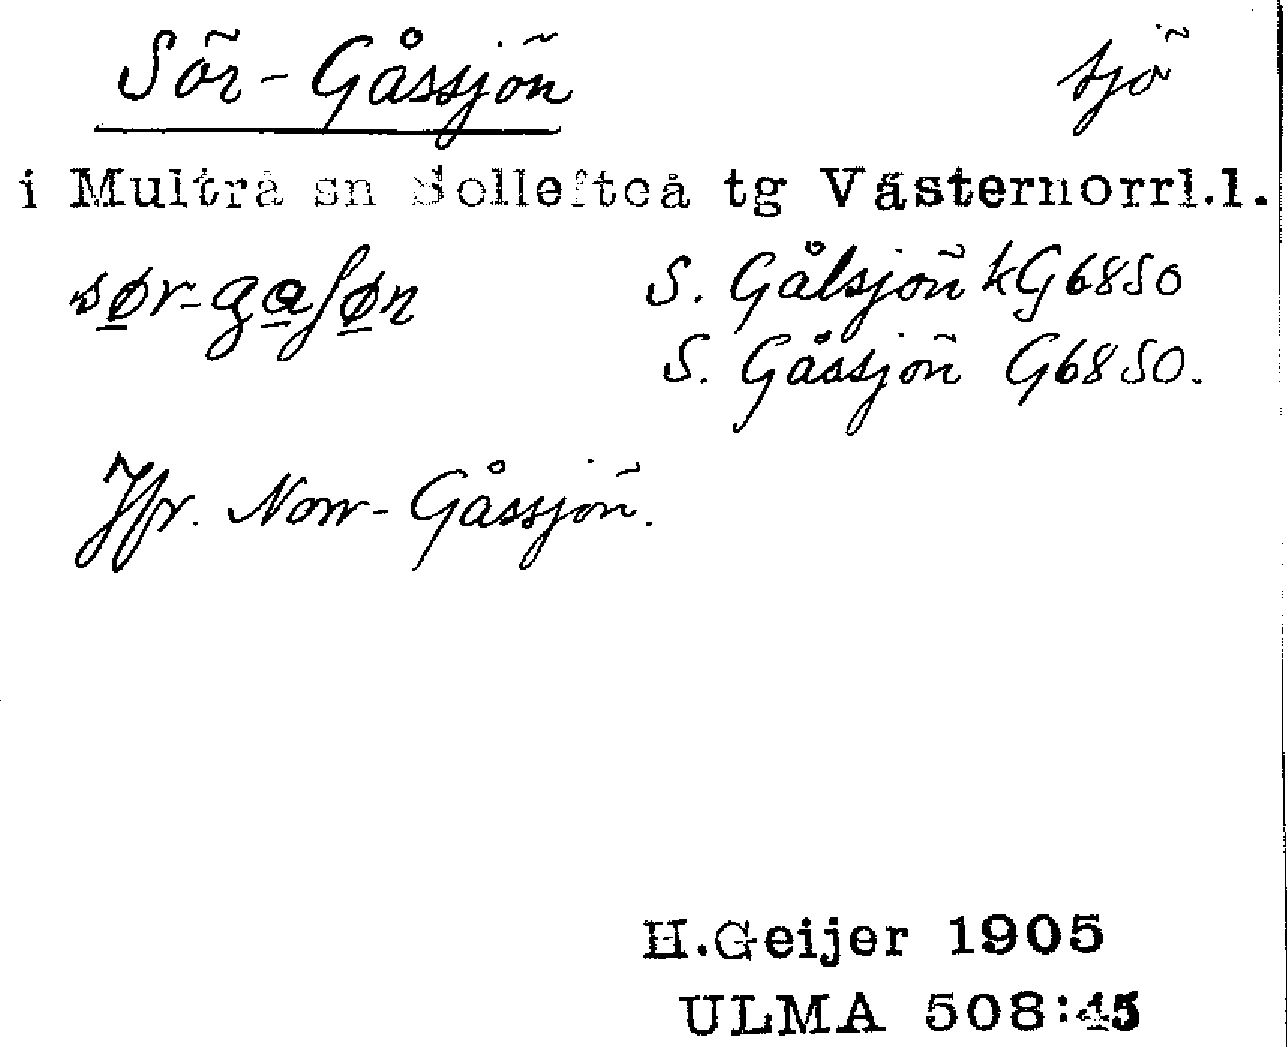 Sör-Gåssjön sjö
i Multrå sn Sollefteå tg Västernorrl.l.
sør-gaʃøn S. Gålsjön kG6850
S. Gåssjön G6850.
Jfr. Norr-Gåssjön.
H.Geijer 1905
ULMA 508:45